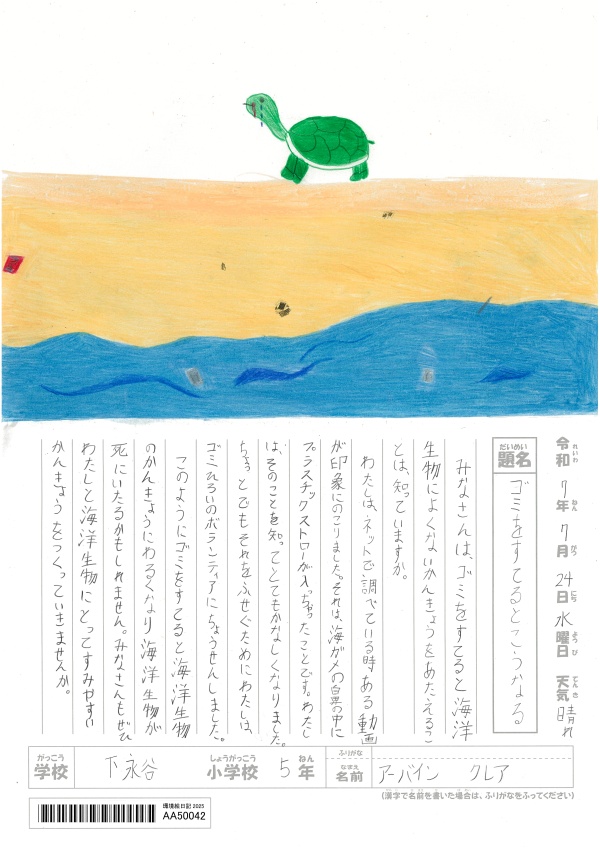 令和7年7月24日水曜日 天気晴れ
題名 ゴミをすてるとこうなる
みなさんは、ゴミをすてると海洋
生物によくないかんきょうをあたえるこ
とは、知っていますか。
わたしは、ネットで調べている時ある動画
が印象にのこりました。それは、海ガメの鼻の中に
プラスチックストローが入っちゃったことです。わたし
は、そのことを知ってとてもかなしくなりました。
ちょっとでもそれをふせぐためにわたしは、
ゴミひろいのボランティアにちょうせんしました。
このようにゴミをすてると海洋生物
のかんきょうにわるくなり海洋生物が
死にいたるかもしれません。みなさんもぜひ
わたしと海洋生物にとってすみやすい
かんきょうをつくっていきませんか。
学校 下永谷 小学校 5年 ふりがな 名前 アーバイン クレア
(漢字で名前を書いた場合は、ふりがなをふってください)
環境絵日記 2025
AA50042